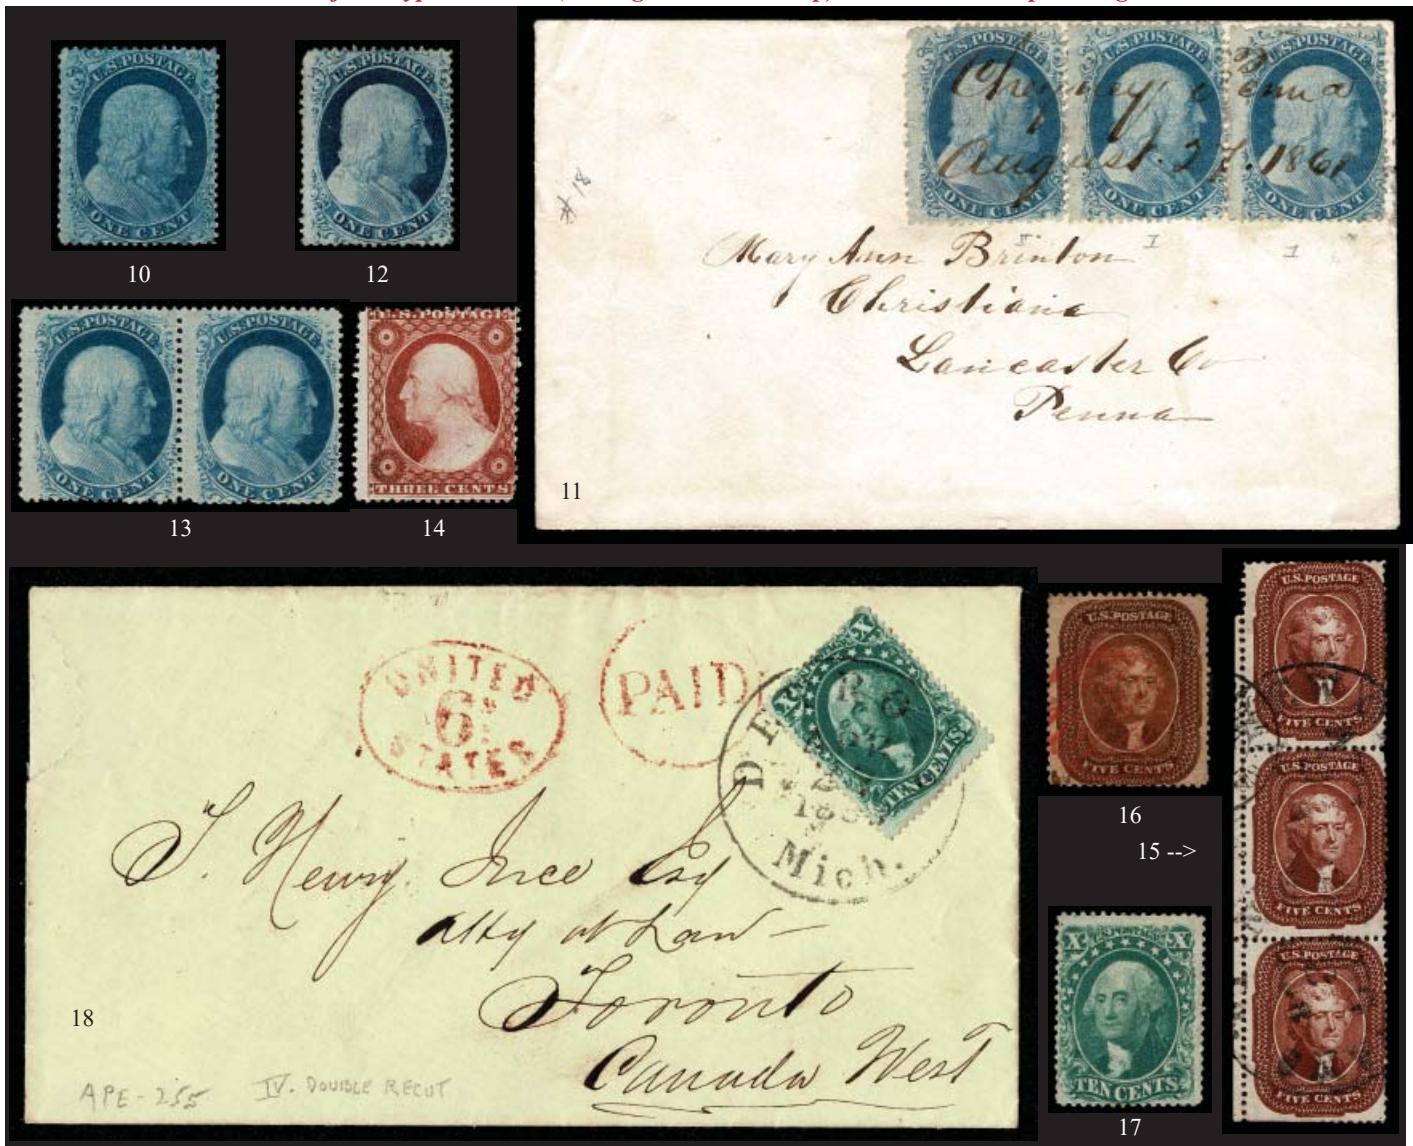 U.S. POSTAGE
ONE CENT
10
U.S. POSTAGE
ONE CENT
12
U.S. POSTAGE
ONE CENT
U.S. POSTAGE
ONE CENT
13
U.S. POSTAGE
THREE CENTS
14
Penna
August. 27. 1861
# 18
II
I
I
Mary Ann Brinton
Christiana
Lancaster Co
Penna
11
UNITED
6
STATES
PAID
X
TEN CENTS
Mich.
J. Henry Ince Esq
Atty at Law
Toronto
Canada West
18
APE-255 IV. DOUBLE RECUT
U.S. POSTAGE
FIVE CENTS
16
15 -->
X U.S. POSTAGE X
TEN CENTS
17
U.S. POSTAGE
FIVE CENTS
U.S. POSTAGE
FIVE CENTS
U.S. POSTAGE
FIVE CENTS